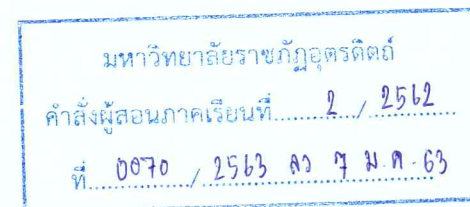 มหาวิทยาลัยราชภัฏอุตรดิตถ์
คำสั่งผู้สอนภาคเรียนที่ 2 / 2562
ที่ 0070 / 2563 ลว 7 ม.ค. 63